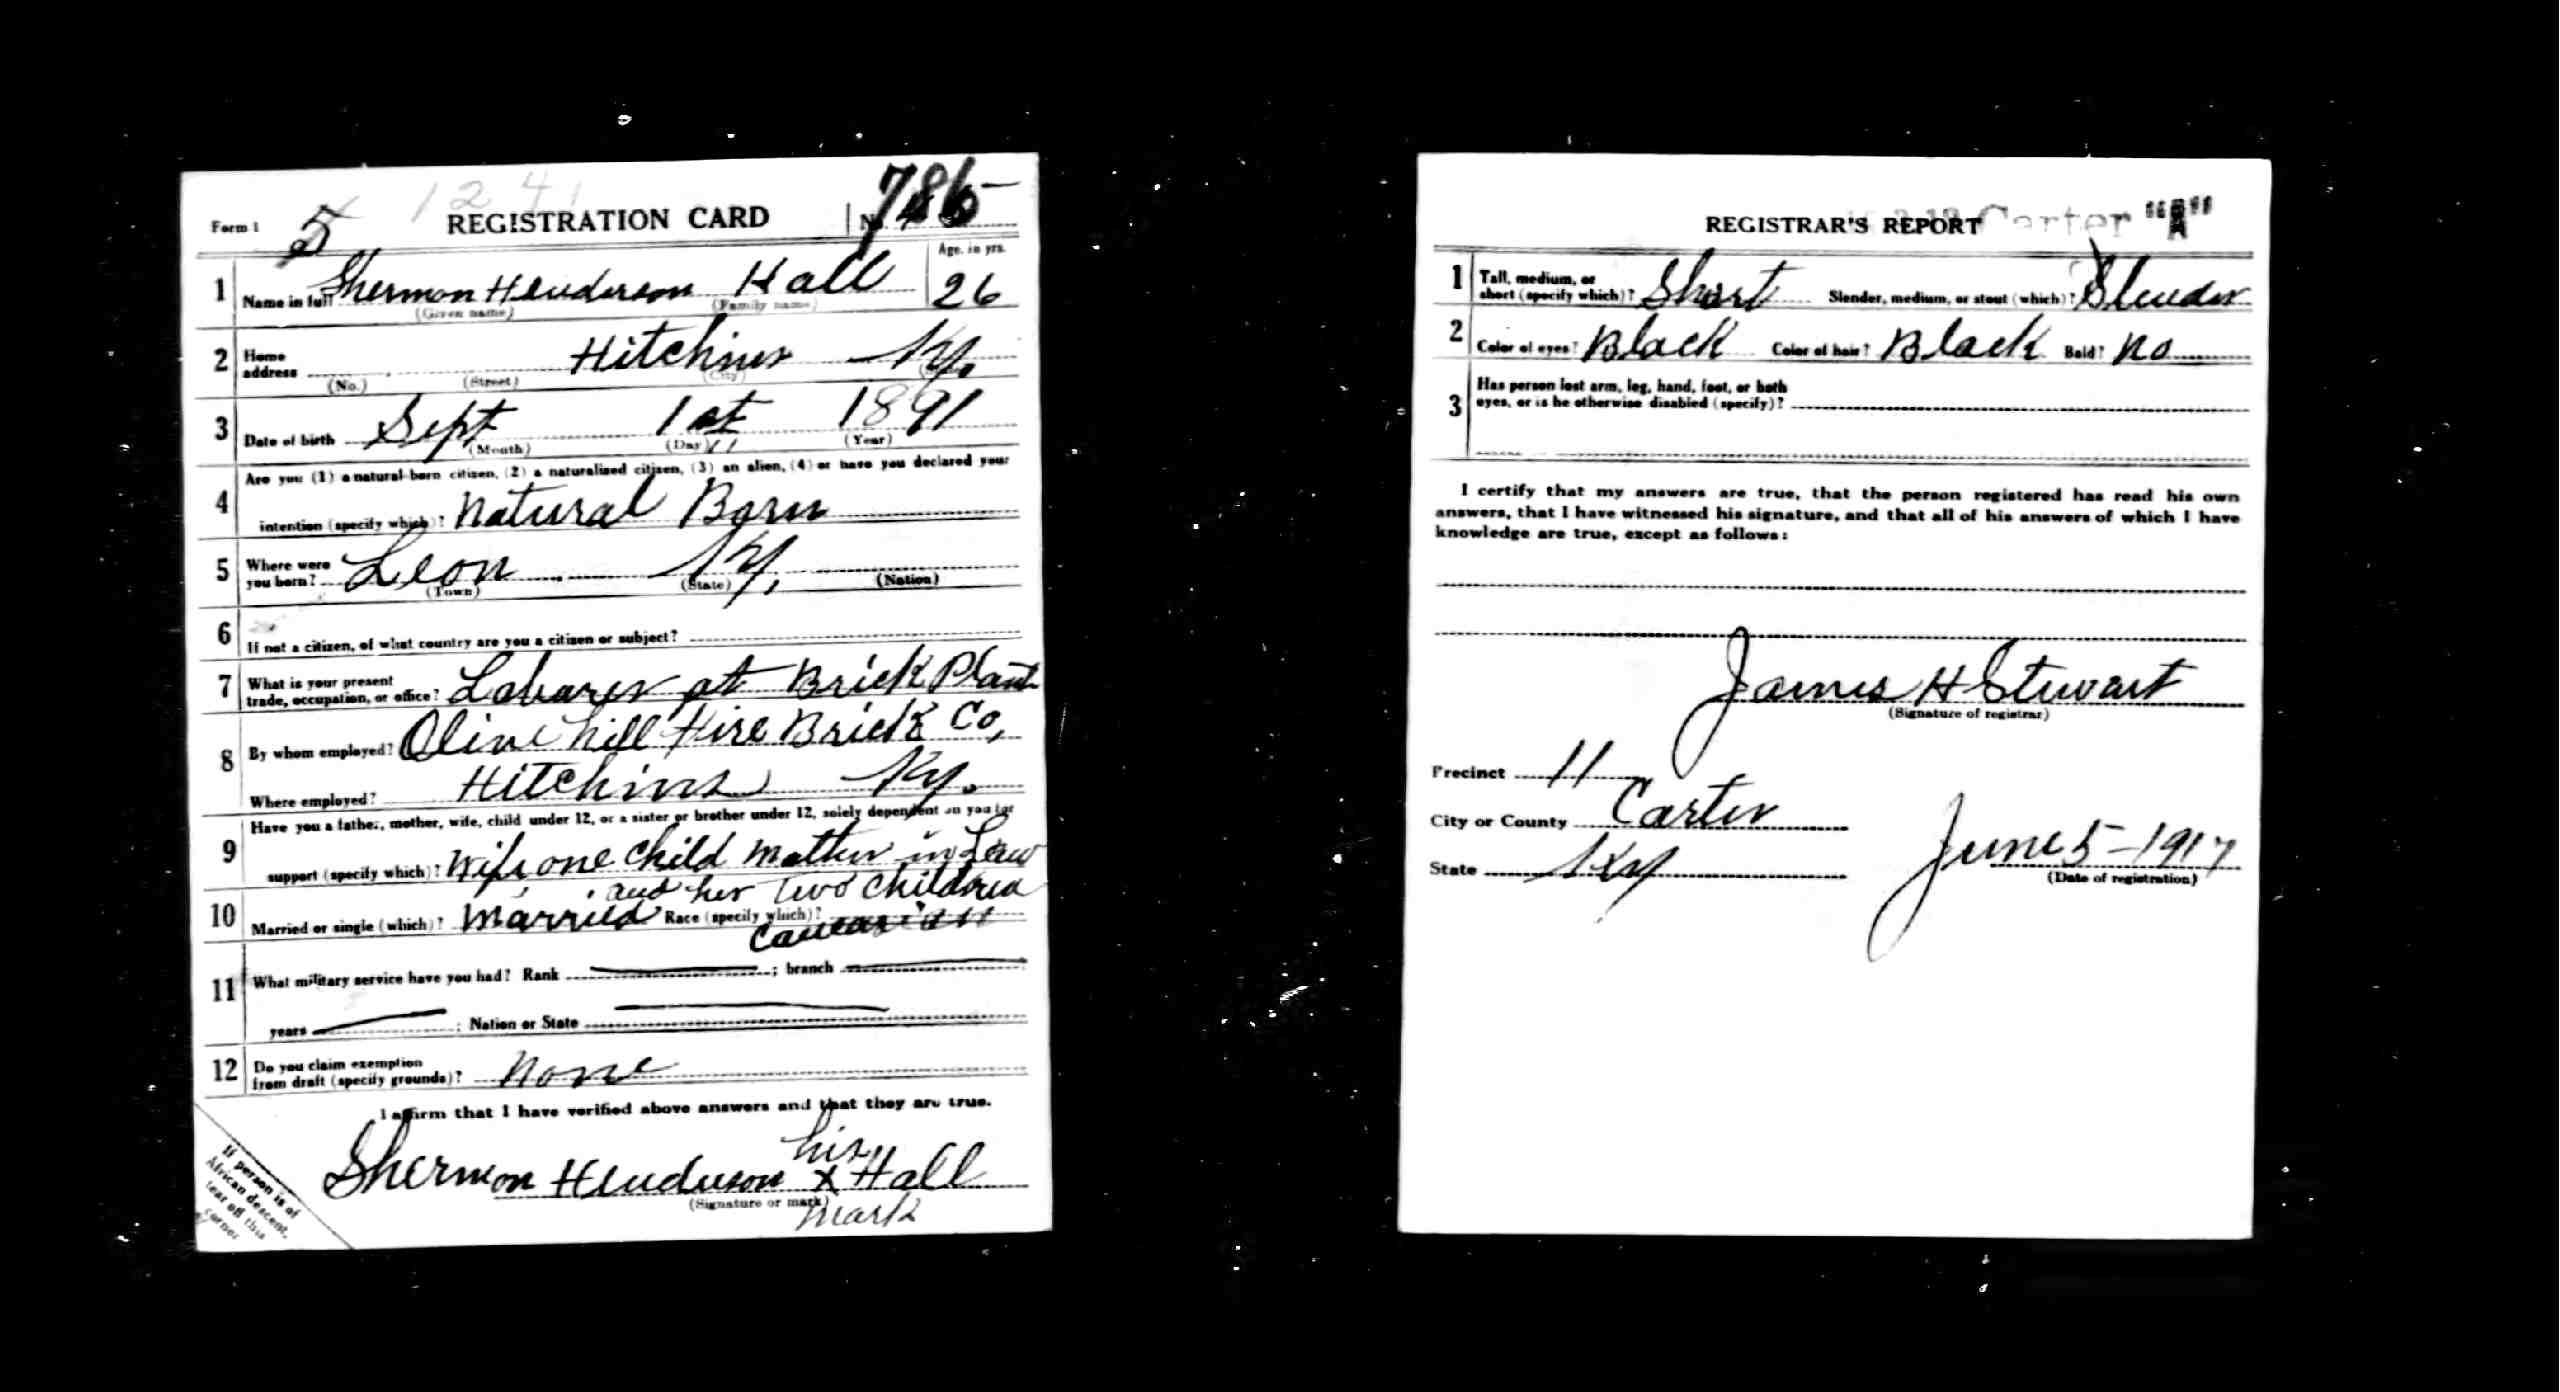 1241
Form 1 5 REGISTRATION CARD No. 786
1 Name in full Shermon Henderson Hall Age, in yrs. 26
(Given name) (Family name)
2 Home address Hitchins Ky.
(No.) (Street) (City)
3 Date of birth Sept 1st 1891
(Month) (Day) (Year)
4 Are you (1) a natural-born citizen, (2) a naturalized citizen, (3) an alien, (4) or have you declared your
intention (specify which)? Natural Born
5 Where were you born? Leon Ky,
(Town) (State) (Nation)
6 If not a citizen, of what country are you a citizen or subject?
7 What is your present trade, occupation, or office? Laborer at Brick Plant
8 By whom employed? Olive hill Fire Brick Co,
Where employed? Hitchins Ky.
9 Have you a father, mother, wife, child under 12, or a sister or brother under 12, solely dependent on you for
support (specify which)? Wife, one child mother in Law
and her Two children
10 Married or single (which)? Married Race (specify which)?
Caucasian
11 What military service have you had? Rank ; branch
years ; Nation or State
12 Do you claim exemption from draft (specify grounds)? None
I affirm that I have verified above answers and that they are true.
his
Shermon Henderson x Hall
(Signature or mark)
mark
If person is of
African descent,
tear off this
corner
REGISTRAR'S REPORT Carter "A"
1 Tall, medium, or short (specify which)? Short Slender, medium, or stout (which)? Slender
2 Color of eyes? Black Color of hair? Black Bald? No
3 Has person lost arm, leg, hand, foot, or both
eyes, or is he otherwise disabled (specify)?
I certify that my answers are true, that the person registered has read his own
answers, that I have witnessed his signature, and that all of his answers of which I have
knowledge are true, except as follows:
James H Stewart
(Signature of registrar)
Precinct 11
City or County Carter
State Ky June 5-1917
(Date of registration)